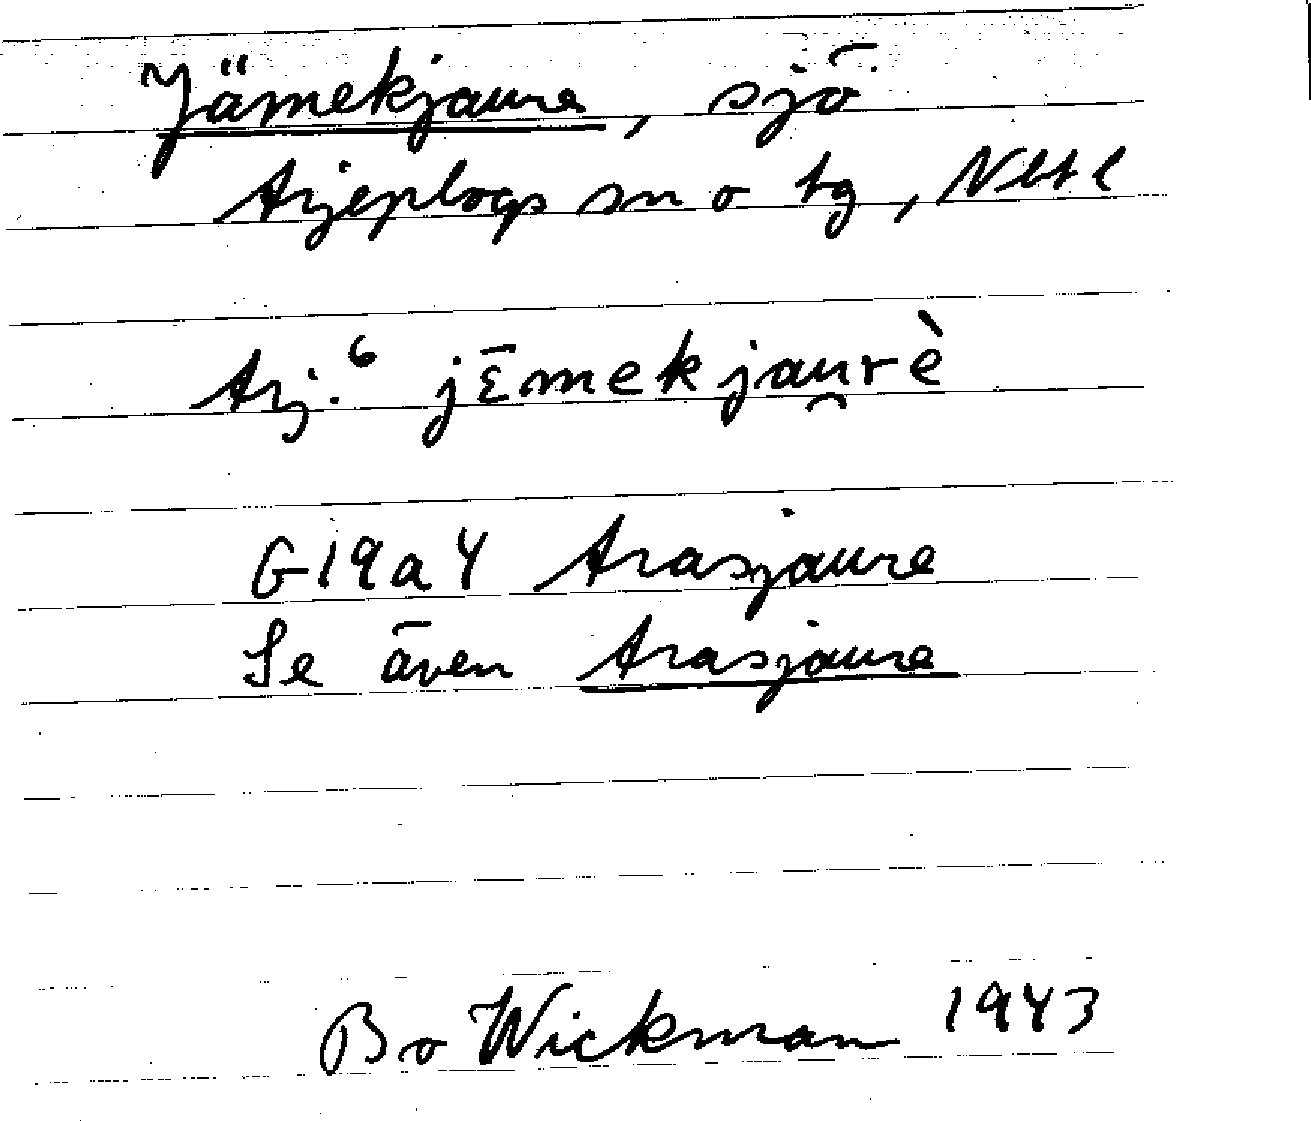 Jämekjaure, sjö
Arjeplogs sn o tg, Nbtl
Arj.⁶ jε̄mekjau̯rè
G19a4 Arasjaure
Se även Arasjaure
Bo Wickman 1943